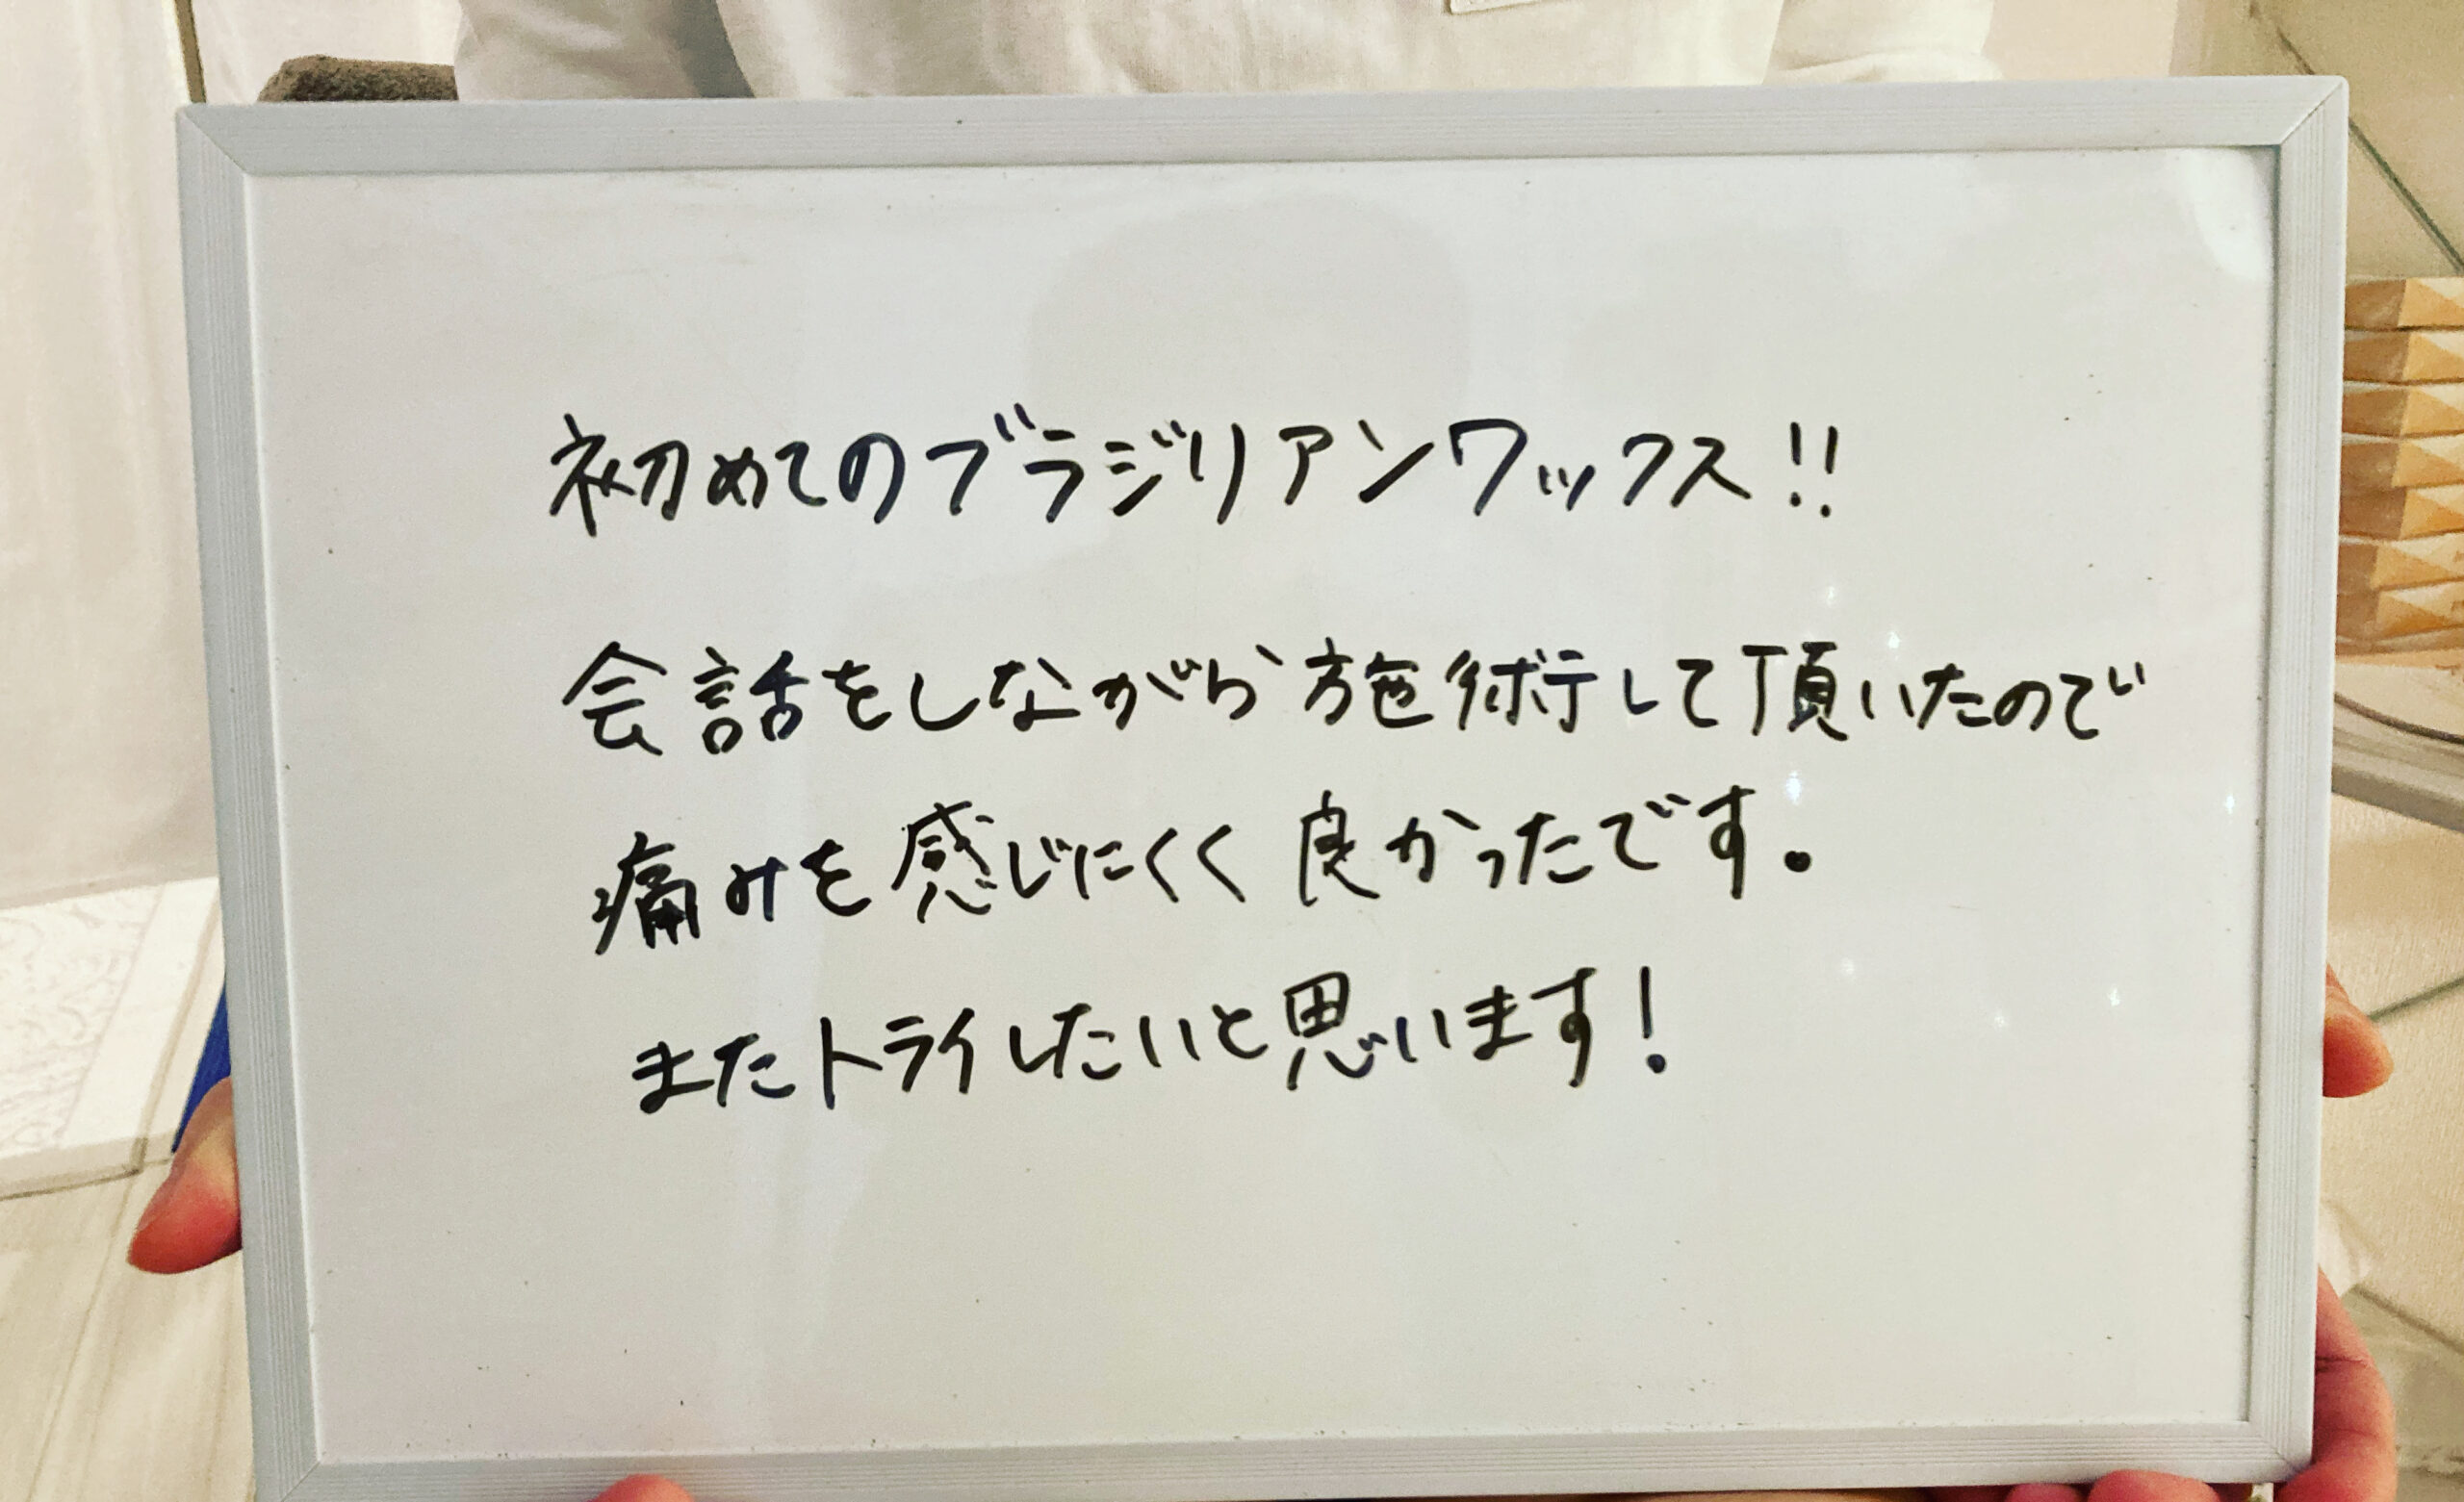 初めてのブラジリアンワックス!!
会話をしながら施術して頂いたので
痛みを感じにくく良かったです。
またトライしたいと思います!